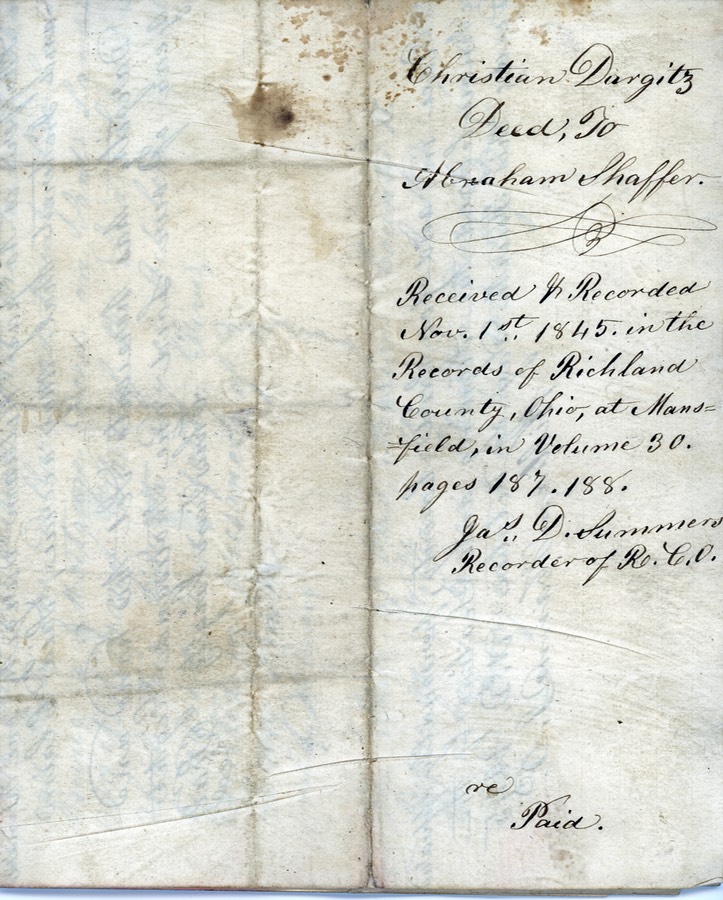 Christian Dargitz
Deed, To
Abraham Shaffer.
Received & Recorded
Nov. 1st, 1845. in the
Records of Richland
County, Ohio, at Mans=
=field, in Volume 30.
pages 187. 188.
Jas. D. Summers
Recorder of R. C. O.
re
Paid.